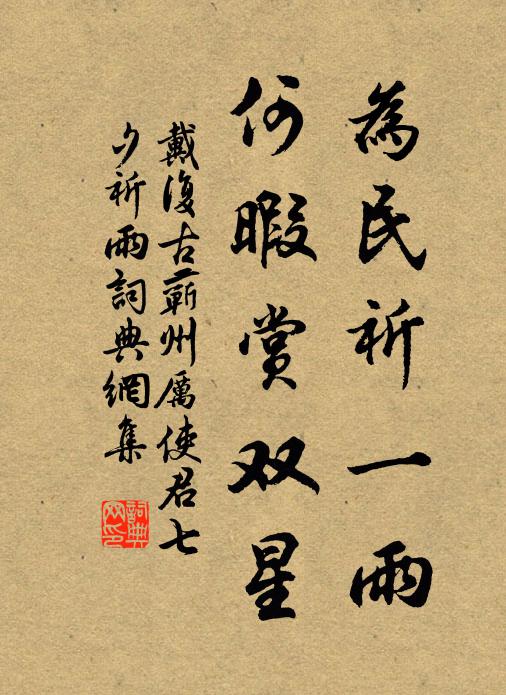 為民祈一雨
何暇賞双星
戴復古蘄州厲使君七
夕祈雨詞典網集
詞典
网印